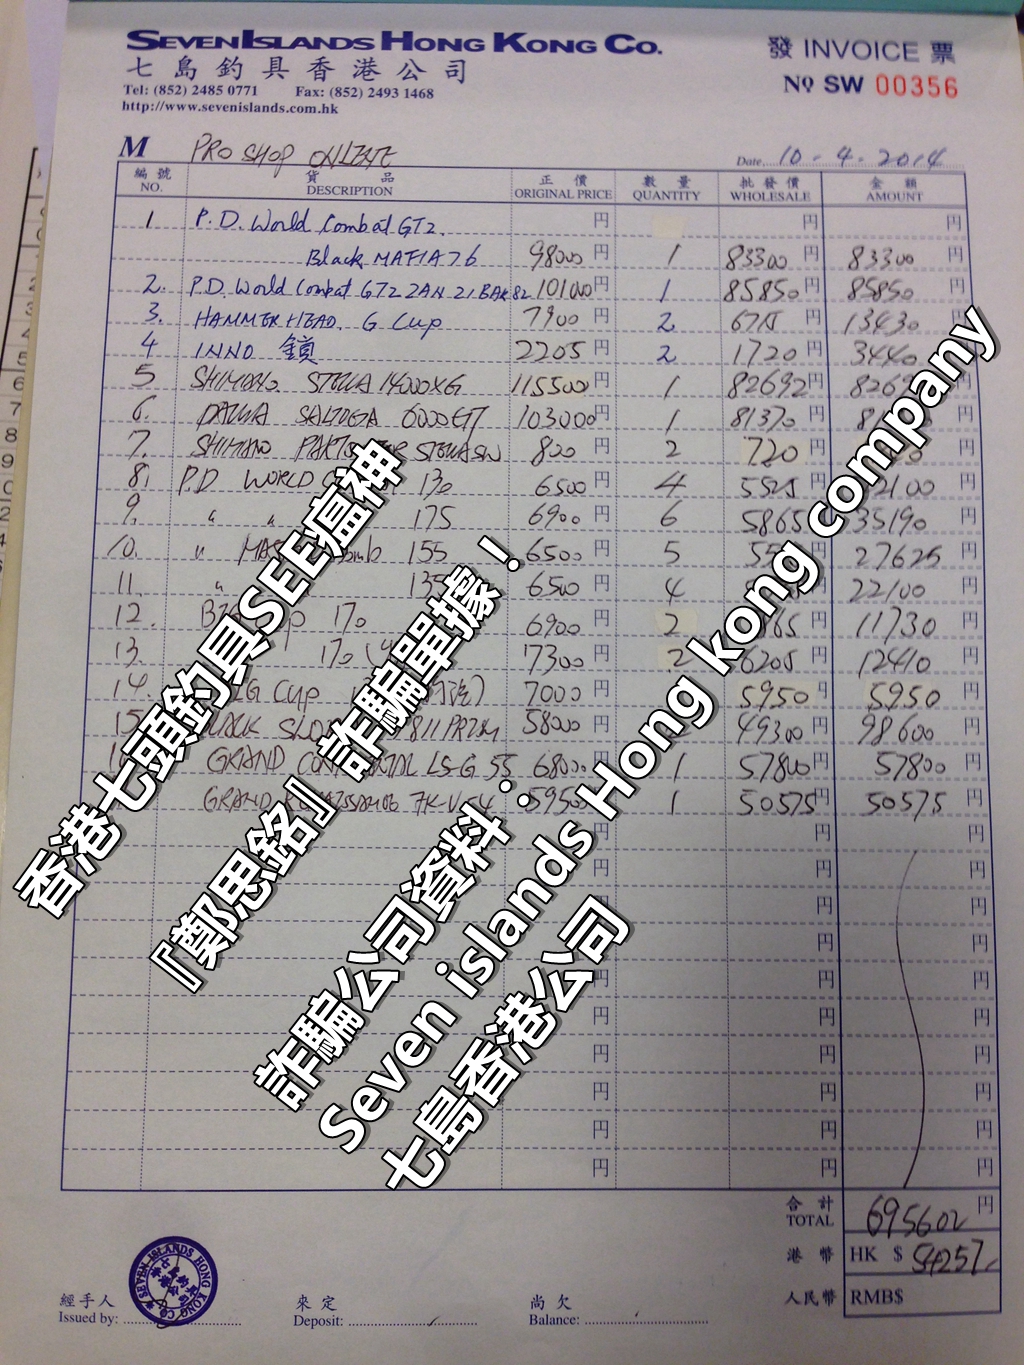 SEVEN ISLANDS HONG KONG CO.
七島釣具香港公司
Tel: (852) 2485 0771 Fax: (852) 2493 1468
http://www.sevenislands.com.hk
發 INVOICE 票
No SW 00356
M PRO SHOP ONLINE
Date 10-4-2014
編號 貨品 正價 數量 批發價 金額
NO. DESCRIPTION ORIGINAL PRICE QUANTITY WHOLESALE AMOUNT
1 P.D. World Combat GT2. 円 円 円
Black MAFIA 76 98000 円 1 83300 円 83300 円
2. P.D. World Combat GT2 ZAN 21 BAR 82 101000 円 1 85850 円 85850 円
3. HAMMER HEAD. G Cup 7900 円 2 6715 円 13430 円
4 INNO 鎖 2205 円 2 1720 円 3440
5 SHIMANO STELLA 14000XG 115500 円 1 82692 円
6. DAIWA SALTIGA 103000 円 1 81370 円
7. SHIMANO STELLA SW 800 円 2 720 円
8, P.D WORLD 130 6500 円 4 5525 22100
9. " " 175 6900 円 6 5865 35190
10. " 155 6500 円 5 円 27625 円
11. " 135 6500 円 4 円 22100 円
12. 170 6900 円 2 円 11730 円
13. 170 7300 円 2 6205 円 12410 円
14. G Cup 7000 円 5950 円 5950 円
15 58000 円 49300 円 98600 円
GRAND LS-G 55 68000 円 1 57800 円 57800 円
GRAND 7K-V-54 59500 1 50575 円 50575 円
円 円 円
円 円 円
円 円 円
円 円 円
円 円 円
円 円 円
円 円 円
円 円 円
円 円 円
円 円 円
香港七頭釣具SEE瘟神
『鄭思銘』詐騙單據！
詐騙公司資料：
Seven islands Hong kong company
七島香港公司
合計
TOTAL 695602 円
港幣 HK $ 54257
人民幣 RMB$
SEVEN ISLANDS HONG KONG CO
經手人 來定 尚欠
Issued by: Deposit: Balance: